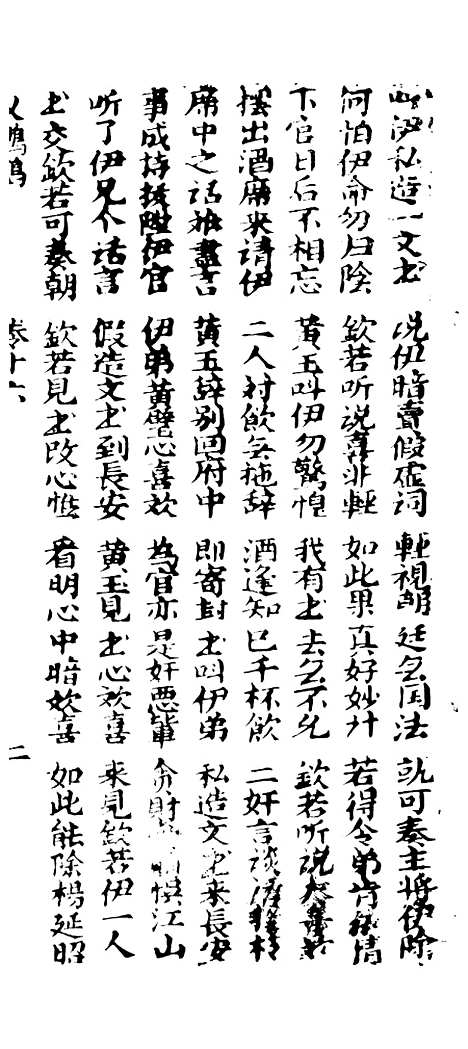 伊私造一文书 况伊暗賣假虚词 軽視朝廷无国法 就可奏主将伊除
何怕伊命勿归陰 欽若听说喜非軽 如此果真好妙计 若得令弟肯依情
下官日后不相忘 黄玉叫伊勿驚惶 我有书去无不允 欽若听说大喜
摆出酒席来请伊 二人对飲无拖辞 酒逢知己千杯飲 二奸言谈
席中之话难盡言 黄玉辞别回府中 即寄封书叫伊弟 私造文书来長安
事成 陞伊官 伊弟黄 心喜欢 為官亦是奸惡輩 贪财 江山
听了伊兄个话言 假造文书到長安 黄玉見书心欢喜 来見欽若伊一人
书交欽若可奏朝 欽若見书改心 看明心中暗欢喜 如此能除楊延昭
卷十六 二